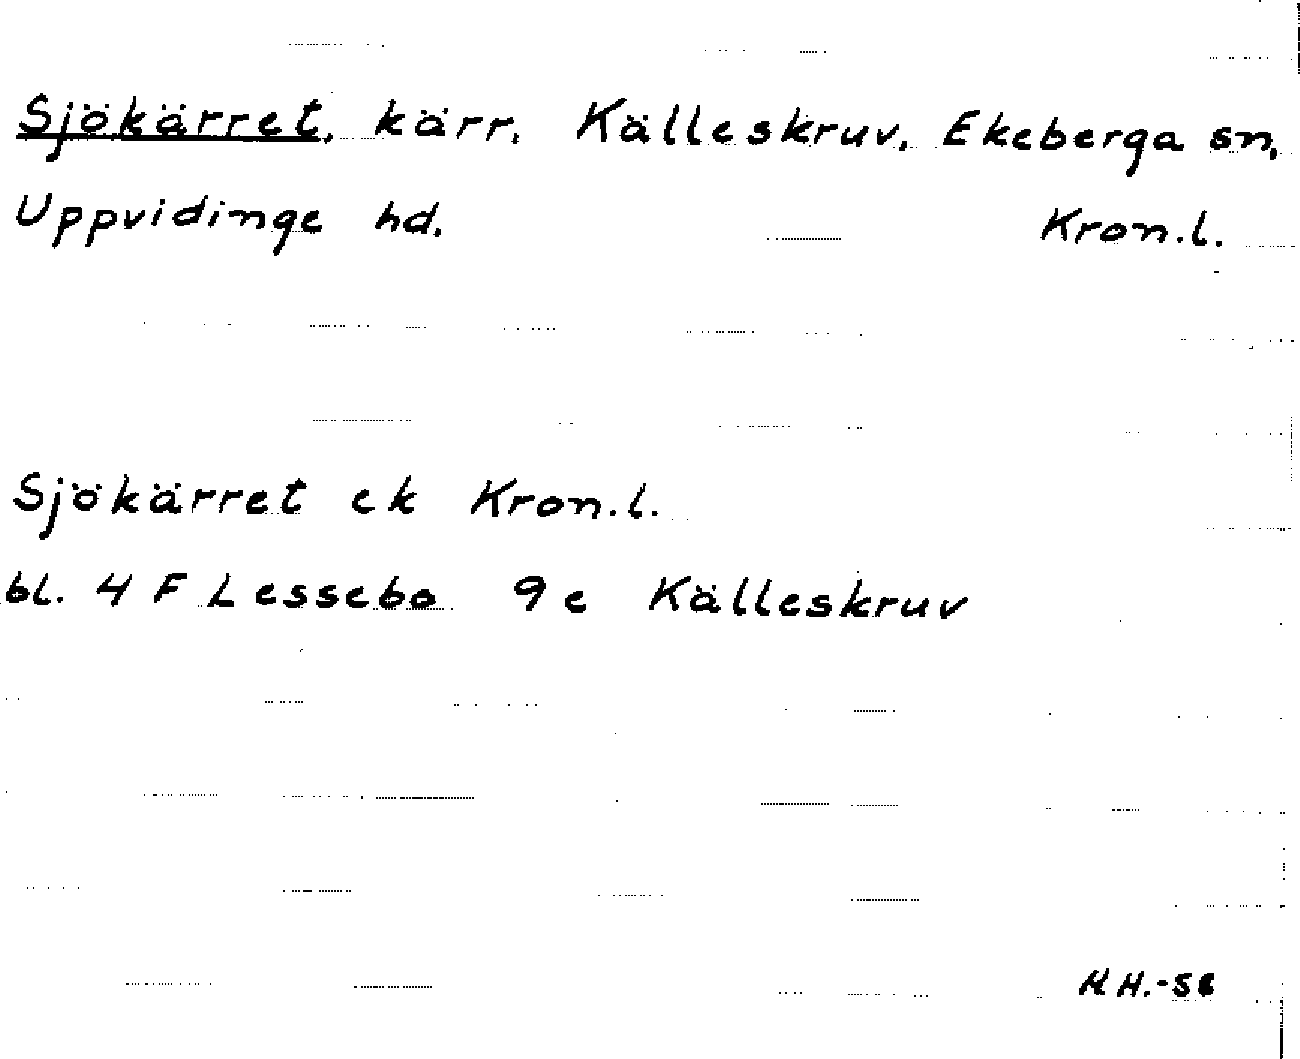 Sjökärret, kärr, Källeskruv, Ekeberga sn,
Uppvidinge hd. Kron.l.
Sjökärret ek Kron.l.
bl. 4 F Lessebo 9e Källeskruv